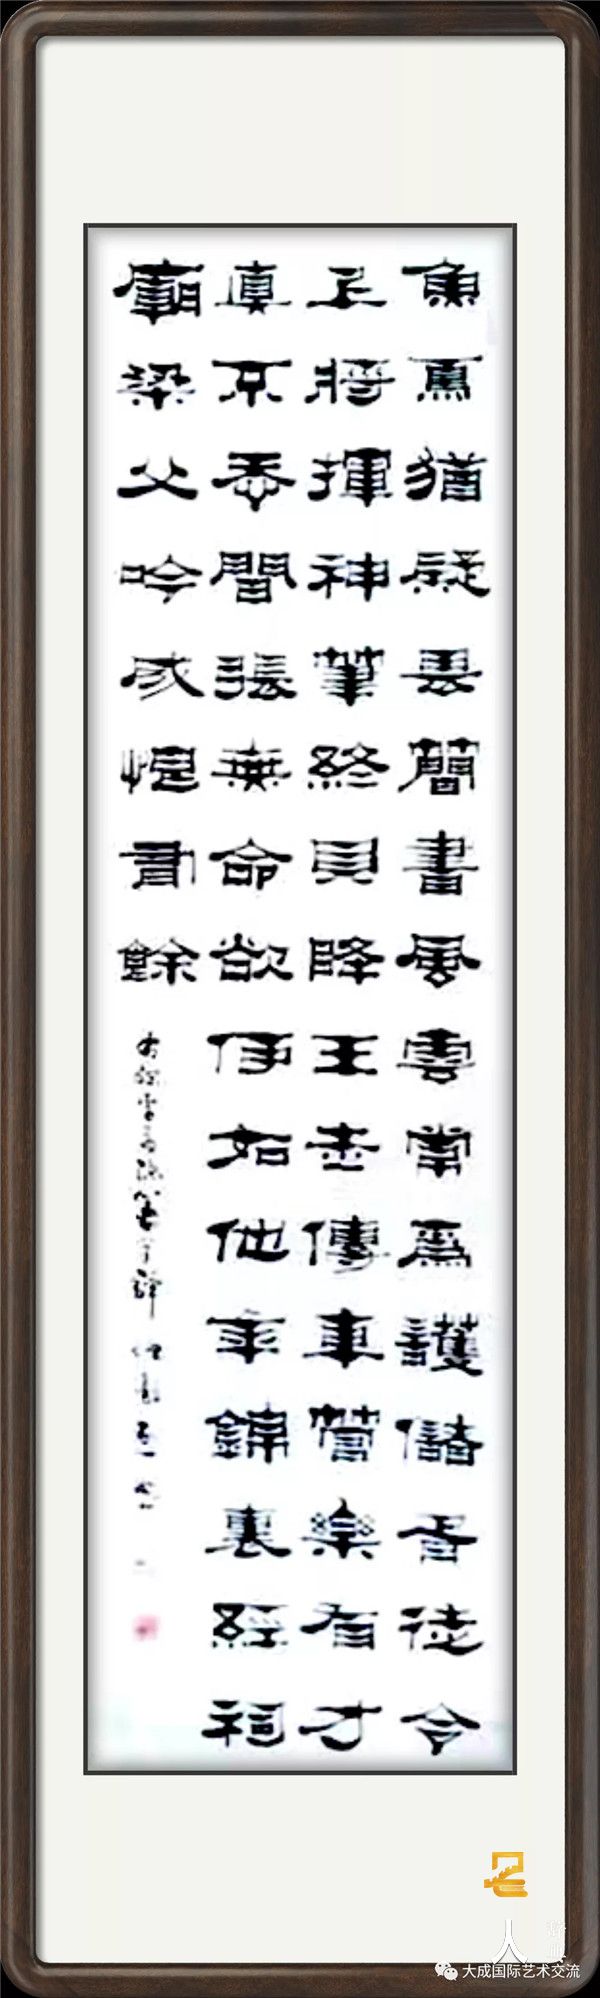 魚鳥猶疑畏簡書風雲常爲護儲胥徒令
上將揮神筆終見降王走傳車管樂有才
真不忝關張無命欲何如他年錦裏經祠
廟梁父吟成恨有餘
大成国际艺术交流